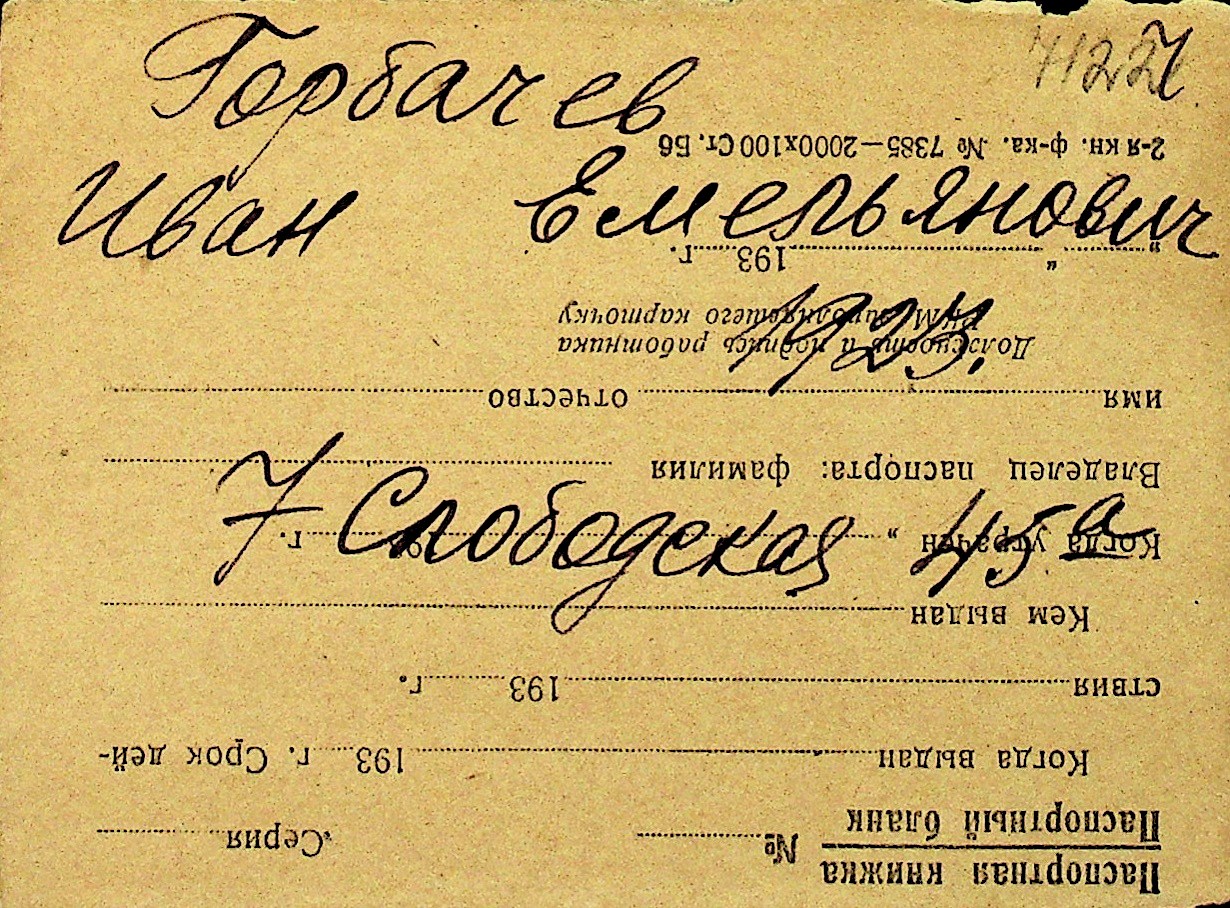 71227
Горбачев
Иван Емельянович
1923.
7 Слободская 45а
Паспортная книжка
Паспортный бланк
№ Серия
Когда выдан 193 г. Срок дей-
ствия 193 г.
Кем выдан
Когда утрачен „ 193 г.
Владелец паспорта: фамилия
имя отчество
Должность и подпись работника
РКМ, заполнявшего карточку
„ “ 193 г.
2-я кн. ф-ка. № 7385—2000х100 Ст. Б6